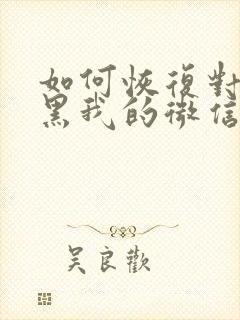 如何恢復對
黑我的微信
吴良歡